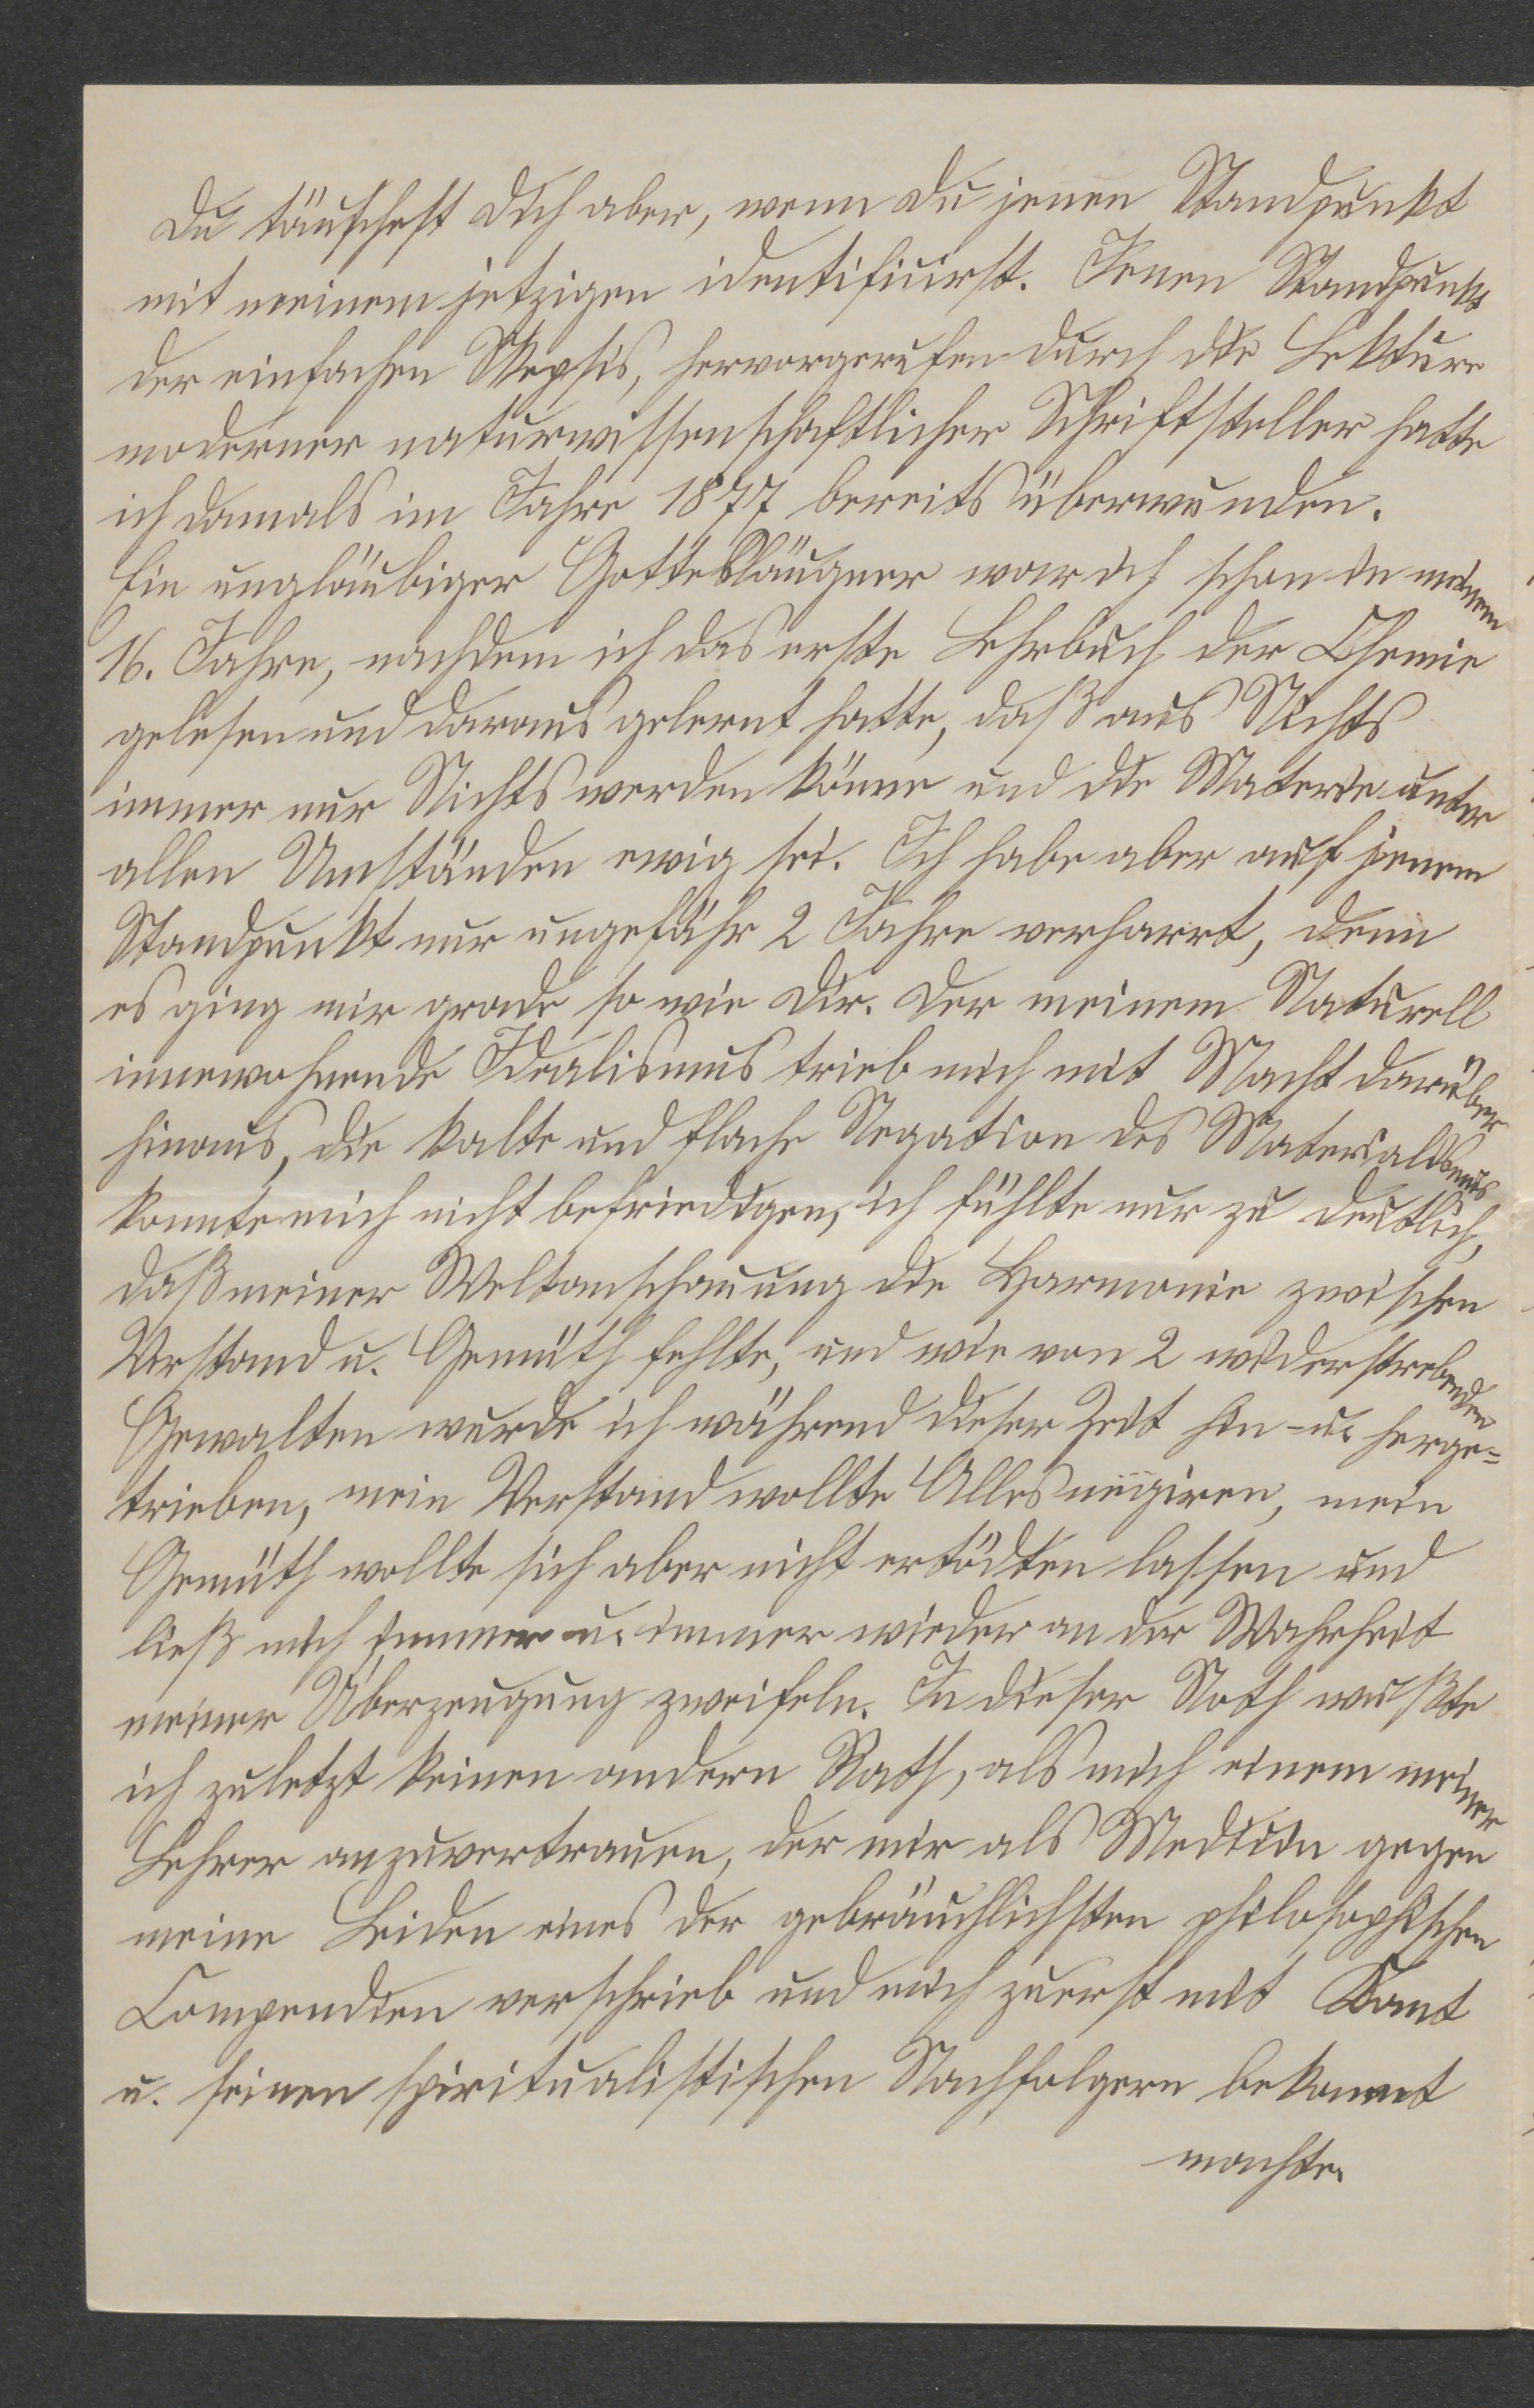 Du täuschest Dich aber, wenn Du jenen Standpunkt
mit meinem jetzigen identificirst. Jenen Standpunkt
der einfachen Skepsis, hervorgerufen durch die Lektüre
moderner naturwissenschaftlicher Schriftsteller hatte
ich damals im Jahre 1877 bereits überwunden.
Ein ungläubiger Gottesläugner war ich schon in meinem
16. Jahre, nachdem ich das erste Lehrbuch der Chemie
gelesen und daraus gelernt hatte, daß aus Nichts
immer nur Nichts werden könne und die Materie unter
allen Umständen ewig sei. Ich habe aber auf jenem
Standpunkt nur ungefähr 2 Jahre verharrt, denn
es ging mir grade so wie Dir. Der meinem Naturell
innewohnende Idealismus trieb mich mit Macht darüber
hinaus, die kalte und flache Negation des Materialismus
konnte mich nicht befriedigen, ich fühlte nur zu deutlich,
daß meiner Weltanschauung die Harmonie zwischen
Verstand u. Gemüth fehlte, und wie von 2 widerstrebenden
Gewalten wurde ich während dieser Zeit hin- u. herge=
trieben, mein Verstand wollte Alles negiren, mein
Gemüth wollte sich aber nicht ertödten lassen und
ließ mich immer u. immer wieder an der Wahrheit
meiner Überzeugung zweifeln. In dieser Noth wußte
ich zuletzt keinen andern Rath, als mich einem meiner
Lehrer anzuvertrauen, der mir als Medicin gegen
meine Leiden eines der gebräuchlichsten philosophischen
Compendien verschrieb und mich zuerst mit Kant
u. seinen spiritualistischen Nachfolgern bekannt
machte.